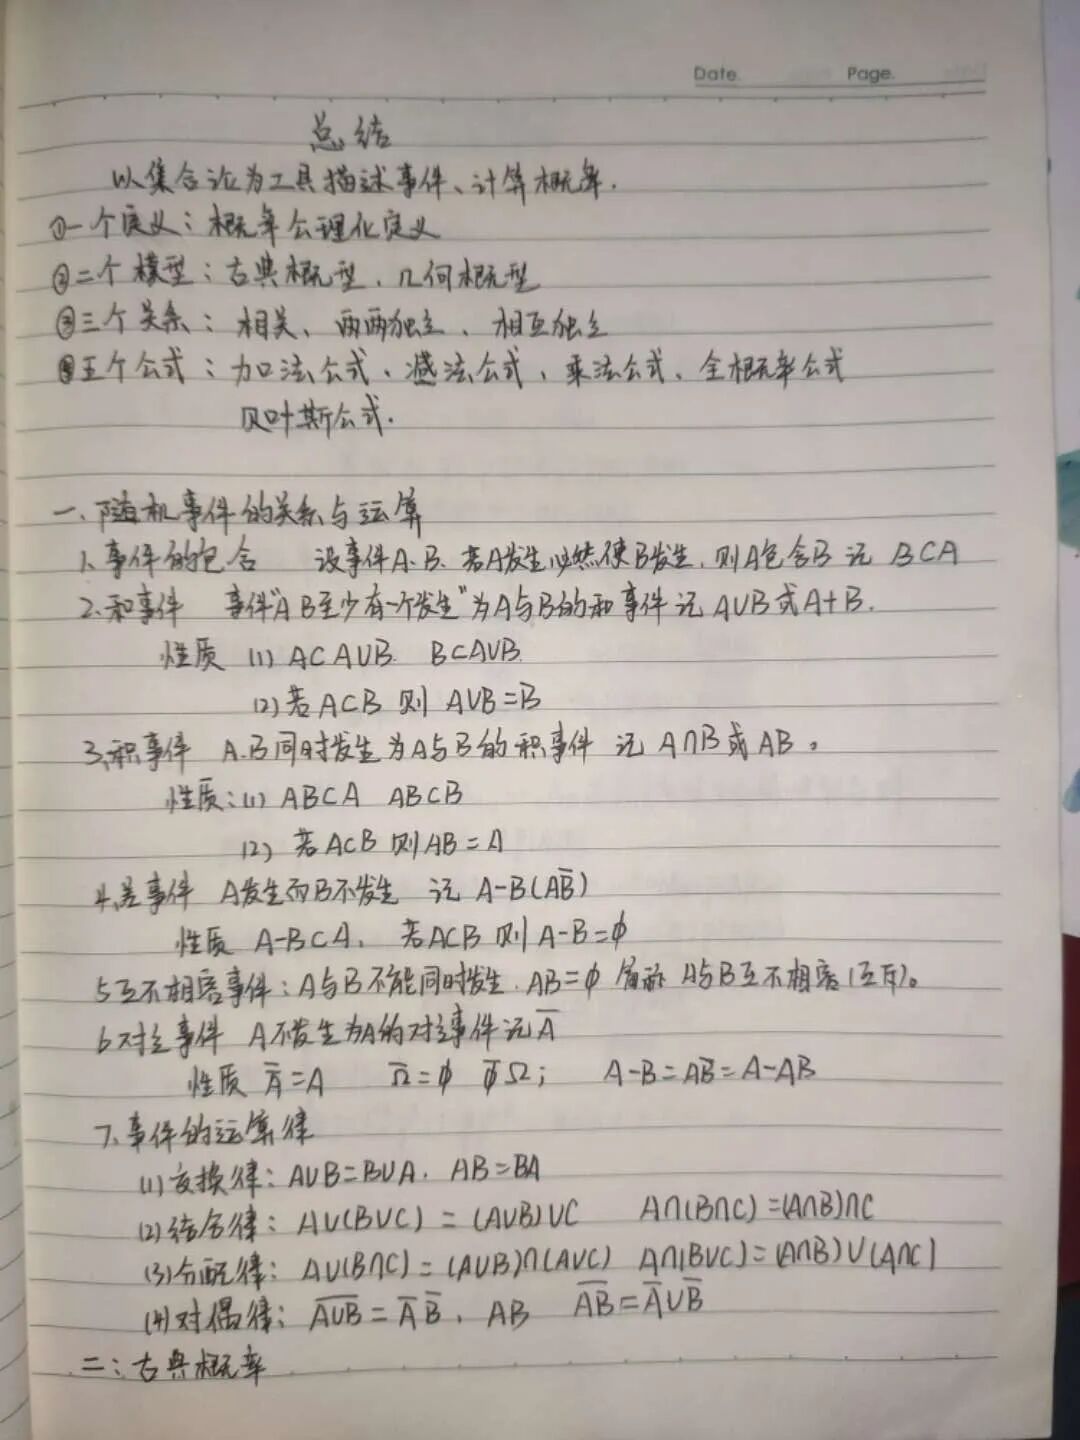 Date. Page.
总结
以集合论为工具描述事件、计算概率.
①一个定义：概率公理化定义
②二个模型：古典概型、几何概型
③三个关系：相关、两两独立、相互独立
④五个公式：加法公式、减法公式、乘法公式、全概率公式
贝叶斯公式.
一、随机事件的关系与运算
1、事件的包含 设事件A.B.若A发生必然使B发生,则A包含B 记 B⊂A
2、和事件 事件"A B至少有一个发生"为A与B的和事件记 A∪B或A+B.
性质 (1) A⊂A∪B. B⊂A∪B.
(2)若A⊂B 则 A∪B=B
3、积事件 A.B同时发生为A与B的积事件 记 A∩B或AB。
性质:(1) AB⊂A AB⊂B
(2) 若A⊂B 则AB=A
4、差事件 A发生而B不发生 记 A-B(AB̅)
性质 A-B⊂A. 若A⊂B 则A-B=ϕ
5互不相容事件：A与B不能同时发生. AB=ϕ 简称 A与B互不相容(互斥)。
6对立事件 A不发生为A的对立事件记A̅
性质 A̿=A Ω̅=ϕ ϕ̅ Ω; A-B=AB̅=A-AB
7、事件的运算律
(1)交换律：A∪B=B∪A. AB=BA
(2)结合律：A∪(B∪C)=(A∪B)∪C A∩(B∩C)=(A∩B)∩C
(3)分配律：A∪(B∩C)=(A∪B)∩(A∪C) A∩(B∪C)=(A∩B)∪(A∩C)
(4)对偶律：A̅∪̅B̅=A̅ B̅. AB A̅B̅=A̅∪B̅
二：古典概率